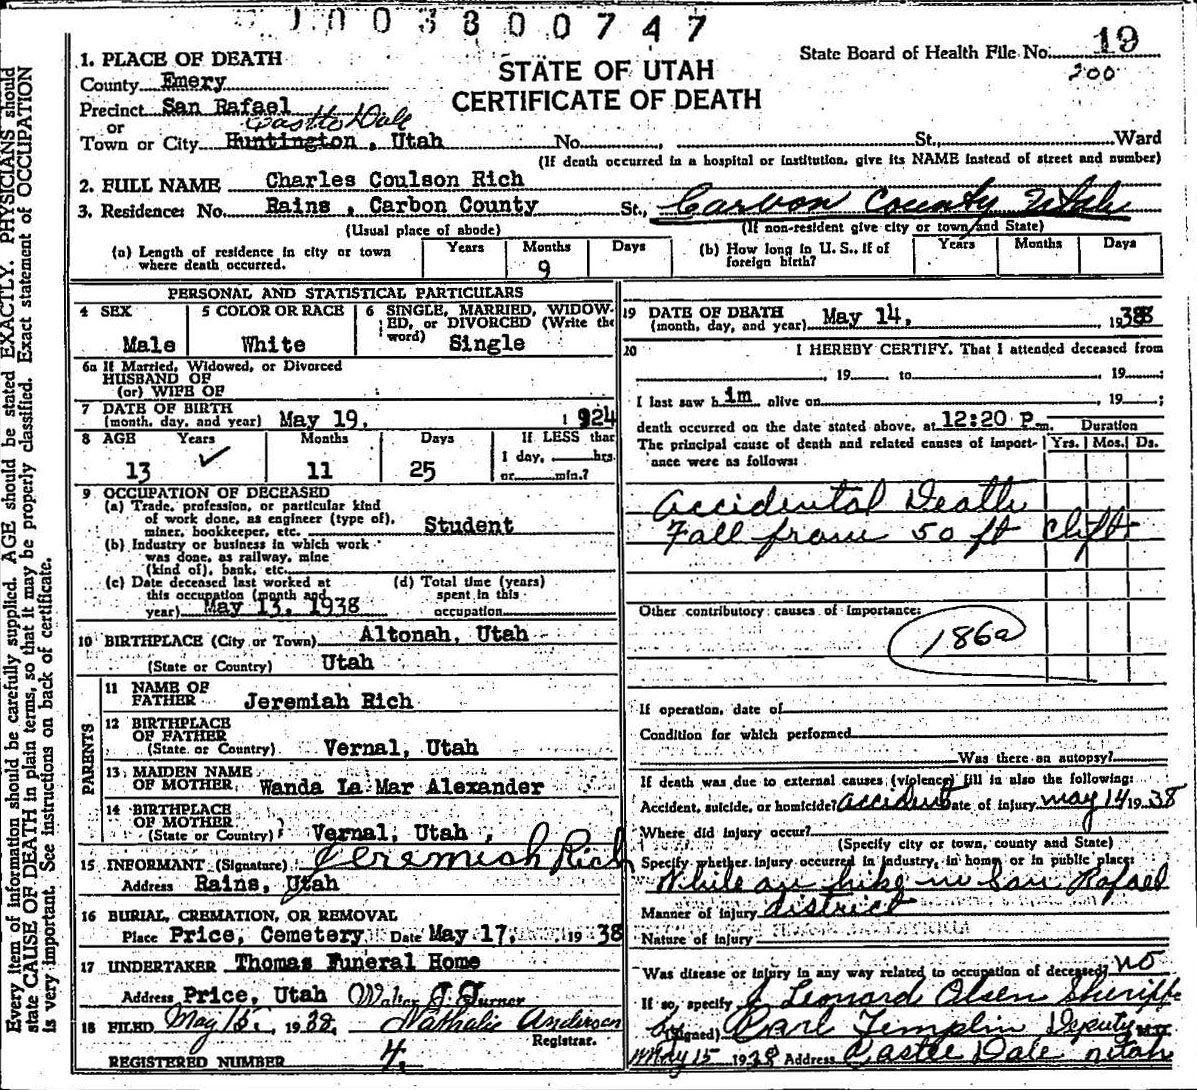 1003800747
State Board of Health File No. 19
200
STATE OF UTAH
CERTIFICATE OF DEATH
1. PLACE OF DEATH
County Emery
Precinct San Rafael
or
Castle Dale
Town or City Huntington, Utah No. St., Ward
(If death occurred in a hospital or institution, give its NAME instead of street and number)
2. FULL NAME Charles Coulson Rich
3. Residence: No. Rains, Carbon County St., Carbon County Utah
(Usual place of abode) (If non-resident give city or town, and State)
(a) Length of residence in city or town where death occurred. Years Months 9 Days
(b) How long in U. S., if of foreign birth? Years Months Days
PERSONAL AND STATISTICAL PARTICULARS
4 SEX Male
5 COLOR OR RACE White
6 SINGLE, MARRIED, WIDOWED, or DIVORCED (Write the word) Single
6a If Married, Widowed, or Divorced
HUSBAND OF
(or) WIFE OF
7 DATE OF BIRTH
(month, day, and year) May 19, 1924
8 AGE Years Months Days If LESS than
13 11 25 1 day, hrs.
or min.?
9 OCCUPATION OF DECEASED
(a) Trade, profession, or particular kind
of work done, as engineer (type of),
miner, bookkeeper, etc. Student
(b) Industry or business in which work
was done, as railway, mine
(kind of), bank, etc.
(c) Date deceased last worked at
this occupation (month and
year) May 13, 1938
(d) Total time (years)
spent in this
occupation
10 BIRTHPLACE (City or Town) Altonah, Utah
(State or Country) Utah
PARENTS
11 NAME OF
FATHER Jeremiah Rich
12 BIRTHPLACE
OF FATHER
(State or Country) Vernal, Utah
13 MAIDEN NAME
OF MOTHER Wanda La Mar Alexander
14 BIRTHPLACE
OF MOTHER
(State or Country) Vernal, Utah,
15 INFORMANT (Signature) Jeremiah Rich
Address Rains, Utah
16 BURIAL, CREMATION, OR REMOVAL
Place Price, Cemetery Date May 17, 1938
17 UNDERTAKER Thomas Funeral Home
Address Price, Utah Walter J. Turner
18 FILED May 15, 1938, Nathalie Anderson
Registrar.
REGISTERED NUMBER 4.
19 DATE OF DEATH
(month, day, and year) May 14, 1938
20 I HEREBY CERTIFY, That I attended deceased from
, 19 to , 19 ;
I last saw him alive on , 19 ;
death occurred on the date stated above, at 12:20 P.m. Duration
The principal cause of death and related causes of import- Yrs. Mos. Ds.
ance were as follows:
Accidental Death
Fall from 50 ft clift
Other contributory causes of importance:
186a
If operation, date of
Condition for which performed
Was there an autopsy?
If death was due to external causes (violence) fill in also the following:
Accident, suicide, or homicide? accident Date of injury May 14 1938
Where did injury occur?
(Specify city or town, county and State)
Specify whether injury occurred in industry, in home, or in public place:
While on hike in San Rafael
Manner of injury district
Nature of injury
Was disease or injury in any way related to occupation of deceased? no
If so, specify J Leonard Olsen Sheriff
(Signed) Carl Templin Deputy M.D.
May 15 1938 Address Castle Dale Utah
Every item of information should be carefully supplied. AGE should be stated EXACTLY. PHYSICIANS should
state CAUSE OF DEATH in plain terms, so that it may be properly classified. Exact statement of OCCUPATION
is very important. See instructions on back of certificate.